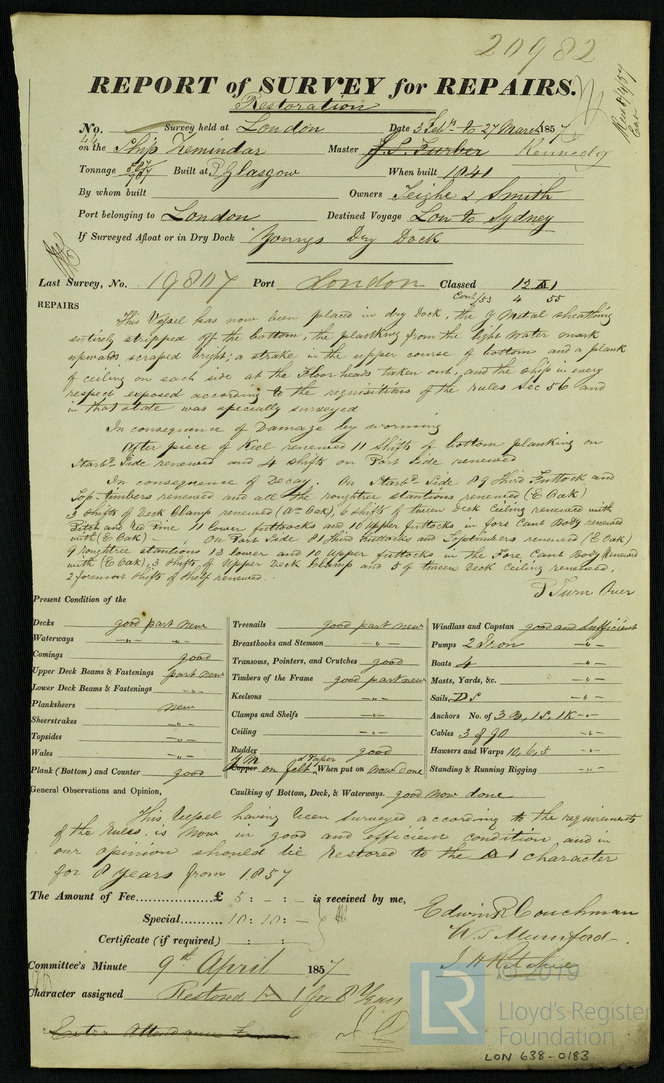 20982
REPORT of SURVEY for REPAIRS.
Restoration
No. Survey held at London Date 3 Feby to 27 March 1857
on the Ship Reminder Master J. S. Furber Kennedy
Tonnage Built at P Glasgow When built 1841
By whom built Owners Teighe & Smith
Port belonging to London Destined Voyage Lon to Sydney
If Surveyed Afloat or in Dry Dock Youngs Dry Dock
Last Survey, No. 19807 Port London Classed 12 A 1
Cont/53 4 55
REPAIRS
This Vessel has now been placed in dry Dock, the Y Metal sheathing
entirely stripped off the bottom, the planking from the light Water mark
upwards scraped bright; a strake in the upper course of bottom and a plank
of ceiling on each side at the Floorheads taken out, and the ship in every
respect exposed according to the requisitions of the rules Sec 56 and
in that state was specially surveyed
In consequence of Damage by worming
After piece of Keel renewed 11 Shifts of bottom planking on
Starbd Side renewed and 4 Shifts on Port Side renewed
In consequence of Decay. On Starbd Side 89 Third Futtock and
Top-timbers renewed and all the roughtree stantions renewed (E Oak)
3 Shifts of Deck Clamp renewed (Am Oak), 6 Shifts of tween Deck Ceiling renewed with
Pitch and Red Pine 11 lower futtocks and 10 Upper futtocks in fore Cant Body renewed
with (E Oak) - On Port Side 81 Third Futtocks and Toptimbers renewed (E Oak)
9 roughtree stantions 13 lower and 10 Upper futtocks in the Fore Cant Body Renewed
with (E Oak), 3 Shifts of Upper Deck Clamp and 5 of tween Deck Ceiling renewed,
2 foremost Shifts of Shelf renewed.
P Turn Over
Present Condition of the
Decks good part new
Waterways -"- -"-
Comings good
Upper Deck Beams & Fastenings part new
Lower Deck Beams & Fastenings -"-
Planksheers new
Sheerstrakes -"-
Topsides -"-
Wales -"-
Plank (Bottom) and Counter good
Treenails good part new
Breasthooks and Stemson -"-
Transoms, Pointers, and Crutches good
Timbers of the Frame good part new
Keelsons -"-
Clamps and Shelfs -"-
Ceiling -"-
Rudder good
Copper Y M on felt & Paper When put on now done
Windlass and Capstan good and Sufficient
Pumps 2 Iron -"-
Boats 4 -"-
Masts, Yards, &c. -"-
Sails, D S -"-
Anchors No. of 3 B, 1 S, 1 K -"-
Cables 3 of 90 -"-
Hawsers and Warps 10, 6, 5 -"-
Standing & Running Rigging -"-
General Observations and Opinion, Caulking of Bottom, Deck, & Waterways. good now done
This Vessel having been surveyed according to the requirements
of the Rules. is now in good and efficient condition and in
our opinion should be restored to the A 1 character
for 8 years from 1857
The Amount of Fee £ 5 : - : - is received by me,
Special 10 : 10 : -
Certificate (if required) : :
Edwin R Couchman
W. T. Mumford
J H Ritchie
Committee's Minute 9th April 1857
Character assigned Restored A 1 for 8 Years
Extra Attendance
© 2019
LR Lloyd's Register
Foundation
LON 638-0183